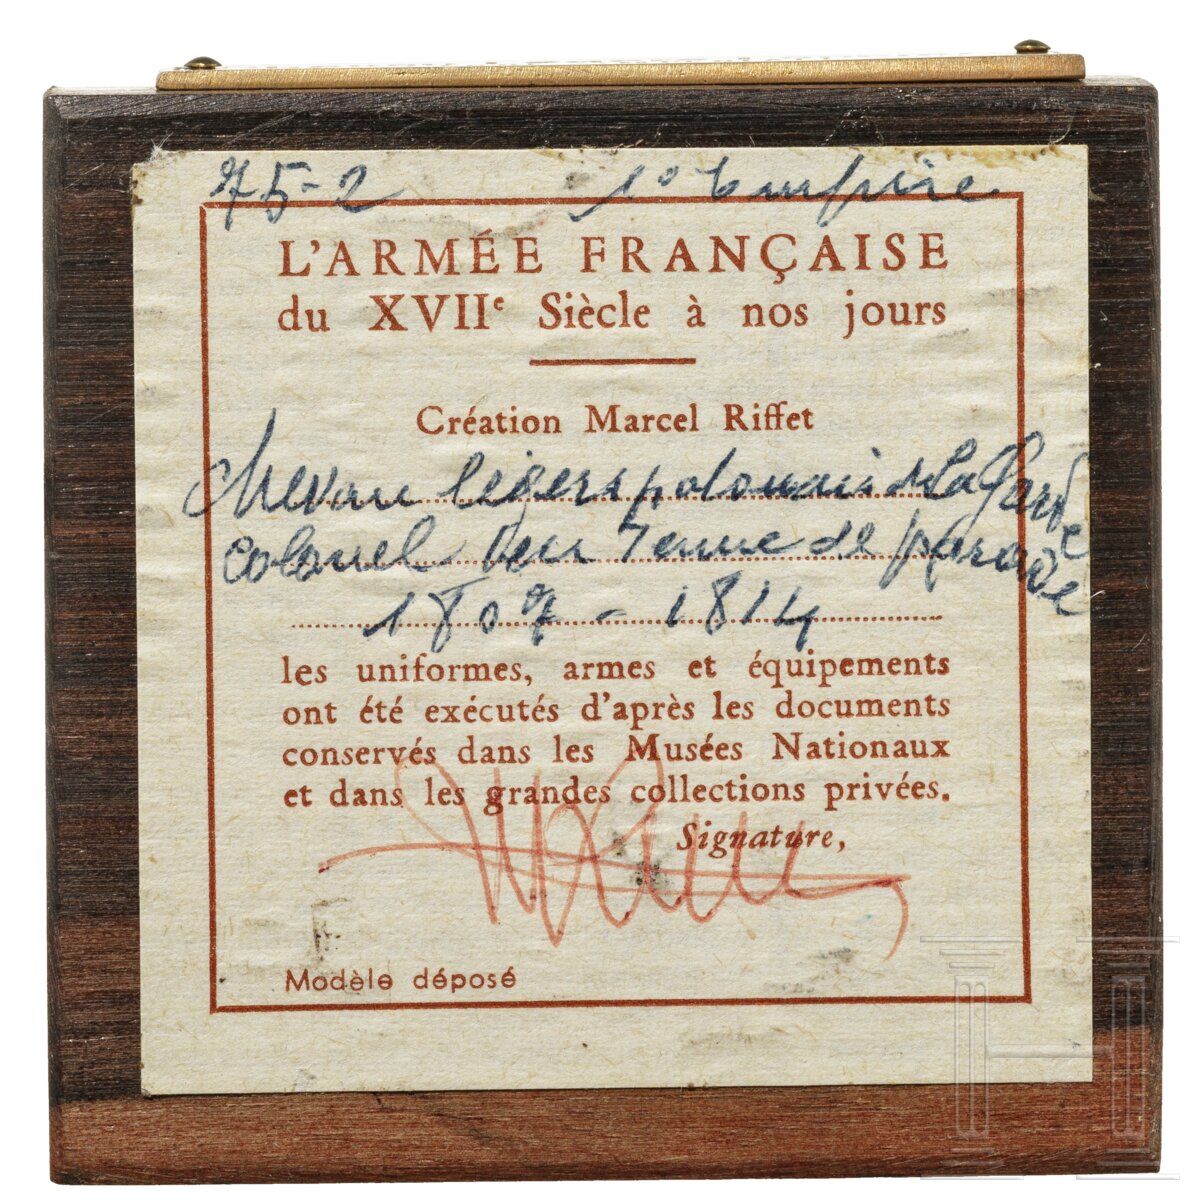 75-2 1° Empire
L'ARMÉE FRANÇAISE
du XVIIe Siècle à nos jours
Création Marcel Riffet
chevau légers polonais de La Garde
colonel en Tenue de parade
1807 - 1814
les uniformes, armes et équipements
ont été exécutés d'après les documents
conservés dans les Musées Nationaux
et dans les grandes collections privées.
Signature,
Modèle déposé